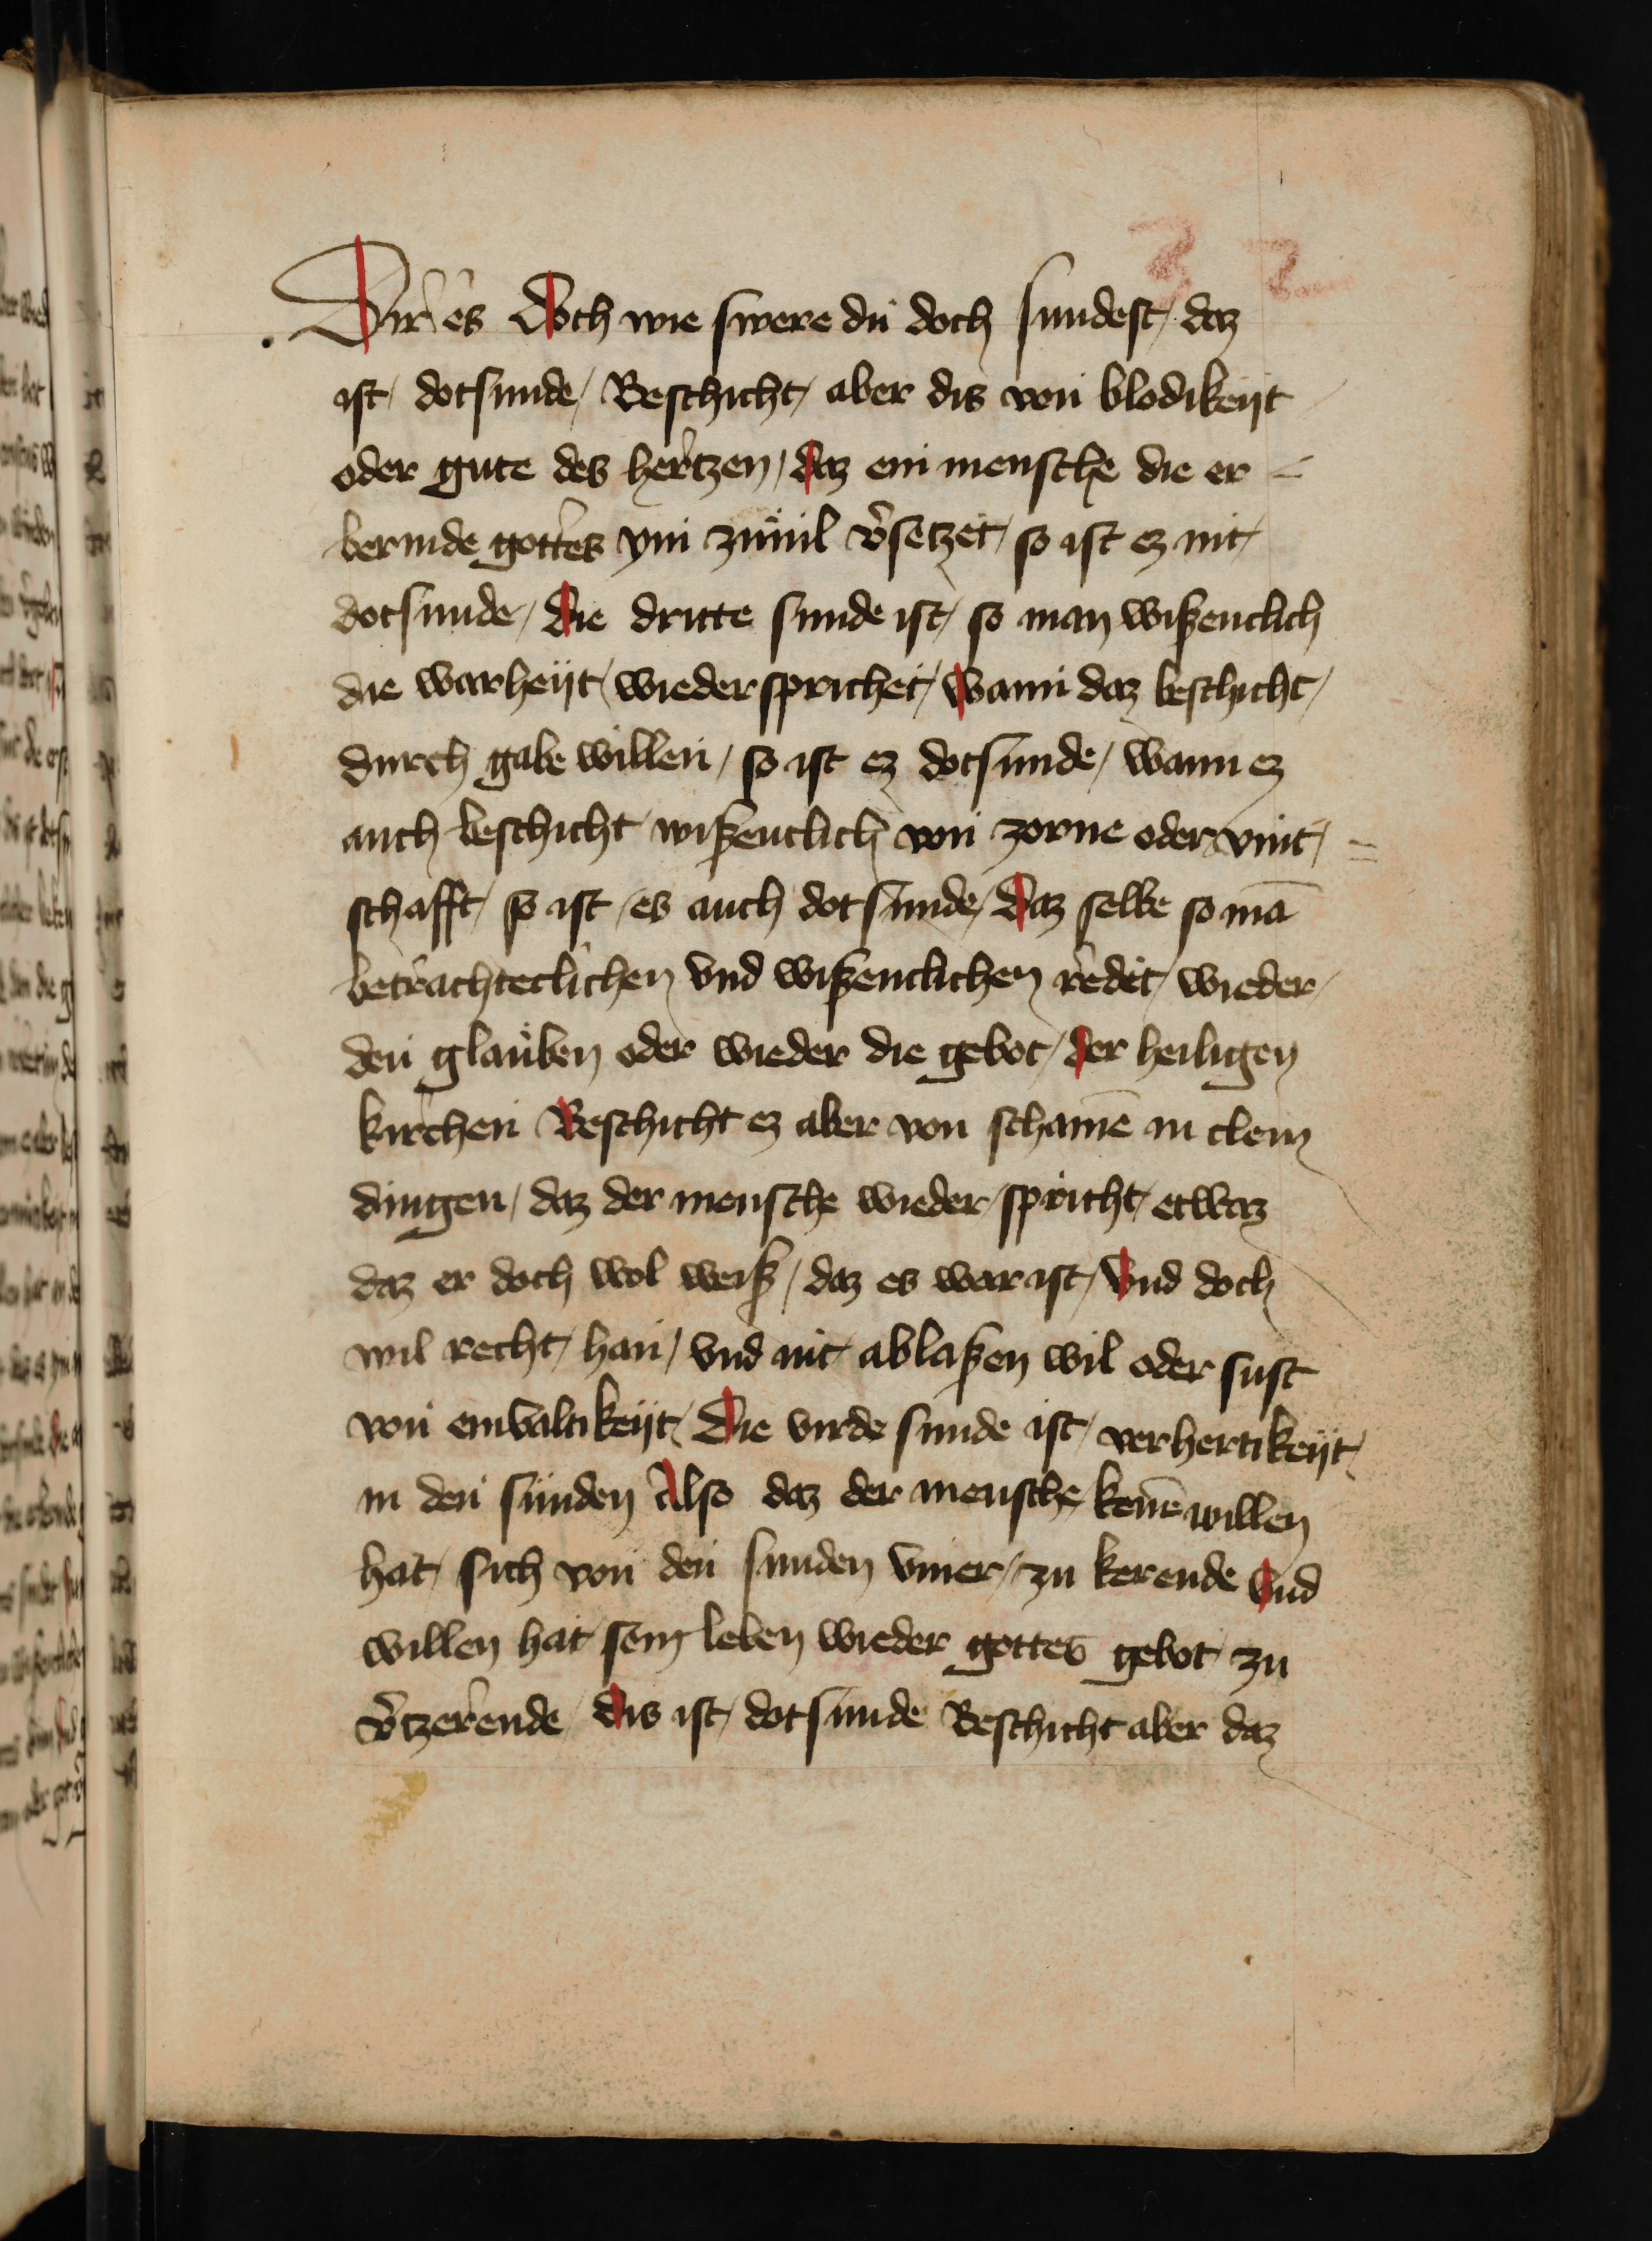 32
Dir es Doch wie swere du doch sundest / daz
ist / dotsunde / Beschicht / aber dis von blodikeyt
oder gute des hertzen / daz ein mensche die er =
bermde gottes ym zuuil v̕setzet / so ist ez nit /
dotsunde / Die dritte sunde ist / so man wißentlich
die warheyt / wieder sprichet / Wann daz beschicht /
durch gabe willen / so ist ez dotsunde / wann ez
auch beschicht wißentlich von zorne oder vint / =
schafft / so ist / es auch dotsunde / Daz selbe so mā
betrachteclichen vnd wißentlichen redet / wieder /
den glauben oder wieder die gebot / der heiligen
kirchen Beschicht ez aber von schamē in clein
dingen / daz der mensche wieder / spricht / etwaz
daz er doch wol weiß / daz es war ist / Vnd doch
wil recht / han / vnd nit ablaßen wil oder sust
von einvaltikeyt / Die virde sunde ist / verhertikeyt /
in den sunden Also daz der mensche kenē willen
hat / sich von den sunden vmer / zu kerende Vnd
willen hat sein leben wieder gottes gebot zu
v̕tzerende / dis ist / dotsunde Beschicht aber daz